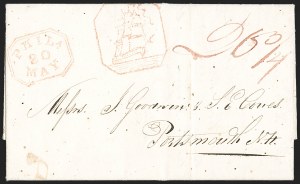 PHILA
20
MAY
Messrs. J. Goodwin & S. E. Coues.
Portsmouth N.H.